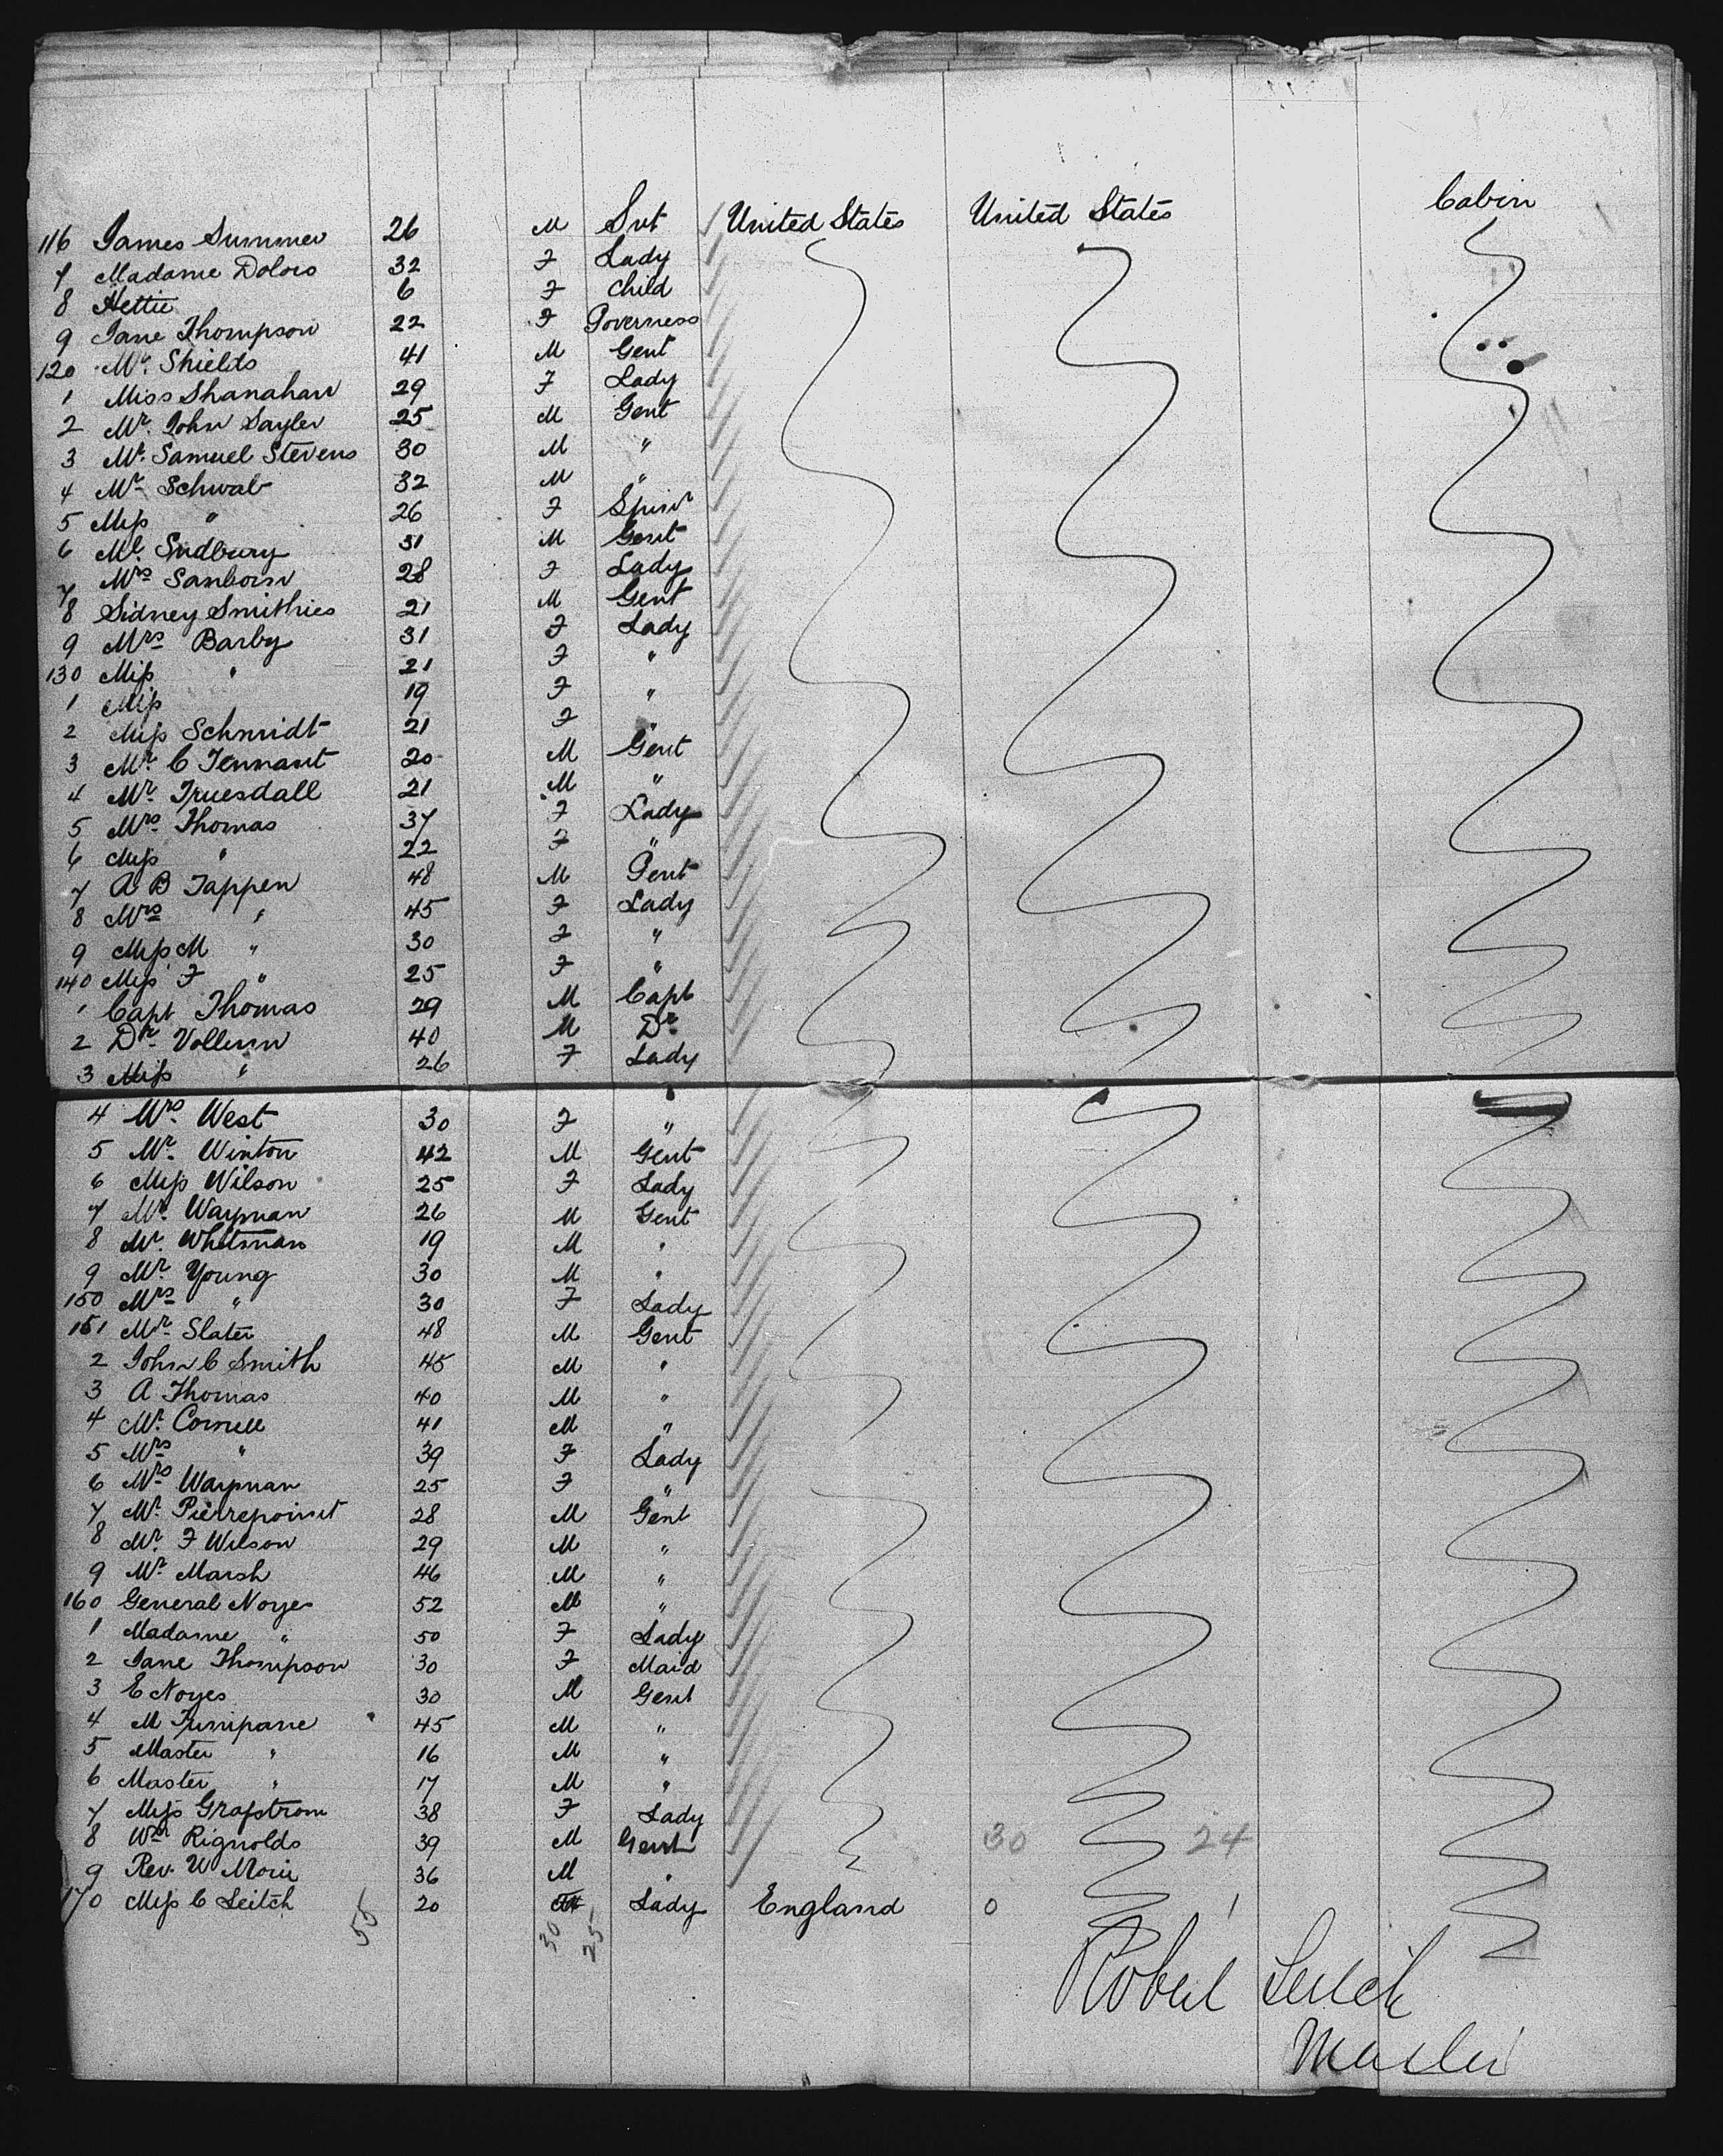 116 James Summer 26 M Svt United States United States Cabin
7 Madame Dolors 32 F Lady
8 Hettie 6 F Child
9 Jane Thompson 22 F Governess
120 Mr. Shields 41 M Gent
1 Miss Shanahan 29 F Lady
2 Mr. John Sayler 25 M Gent
3 Mr. Samuel Stevens 30 M "
4 Mr Schwab 32 M "
5 Miss " 26 F Spinr
6 Mr Sudbury 31 M Gent
7 Mrs Sanborn 28 F Lady
8 Sidney Smithies 21 M Gent
9 Mrs Barby 31 F Lady
130 Miss " 21 F "
1 Miss 19 F "
2 Miss Schmidt 21 F "
3 Mr. C Tennant 20 M Gent
4 Mr. Truesdall 21 M "
5 Mrs Thomas 37 F Lady
6 Miss " 22 F "
7 A B Tappen 48 M Gent
8 Mrs " 45 F Lady
9 Miss M " 30 F "
140 Miss F " 25 F "
1 Capt Thomas 29 M Capt
2 Dr Vollum 40 M Dr
3 Miss " 26 F Lady
4 Mrs West 30 F "
5 Mr. Winton 42 M Gent
6 Miss Wilson 25 F Lady
7 Mr. Wayman 26 M Gent
8 Mr. Whitman 19 M "
9 Mr. Young 30 M "
150 Mrs " 30 F Lady
151 Mr Slater 48 M Gent
2 John C Smith 45 M "
3 A Thomas 40 M "
4 Mr. Cornell 41 M "
5 Mrs " 39 F Lady
6 Mrs Wayman 25 F "
7 Mr. Pierrepoint 28 M Gent
8 Mr. F Wilson 29 M "
9 Mr Marsh 46 M "
160 General Noyes 52 M "
1 Madame " 50 F Lady
2 Jane Thompson 30 F Maid
3 E Noyes 30 M Gent
4 M 45 M "
5 Master " 16 M "
6 Master " 17 M "
7 Miss Grafstrom 38 F Lady
8 Wm Rignolds 39 M Gent 30 24
9 Rev. W 36 M "
170 Miss C Leitch 20 Lady England 0 1
55 30 25
Robert Leitch
Master